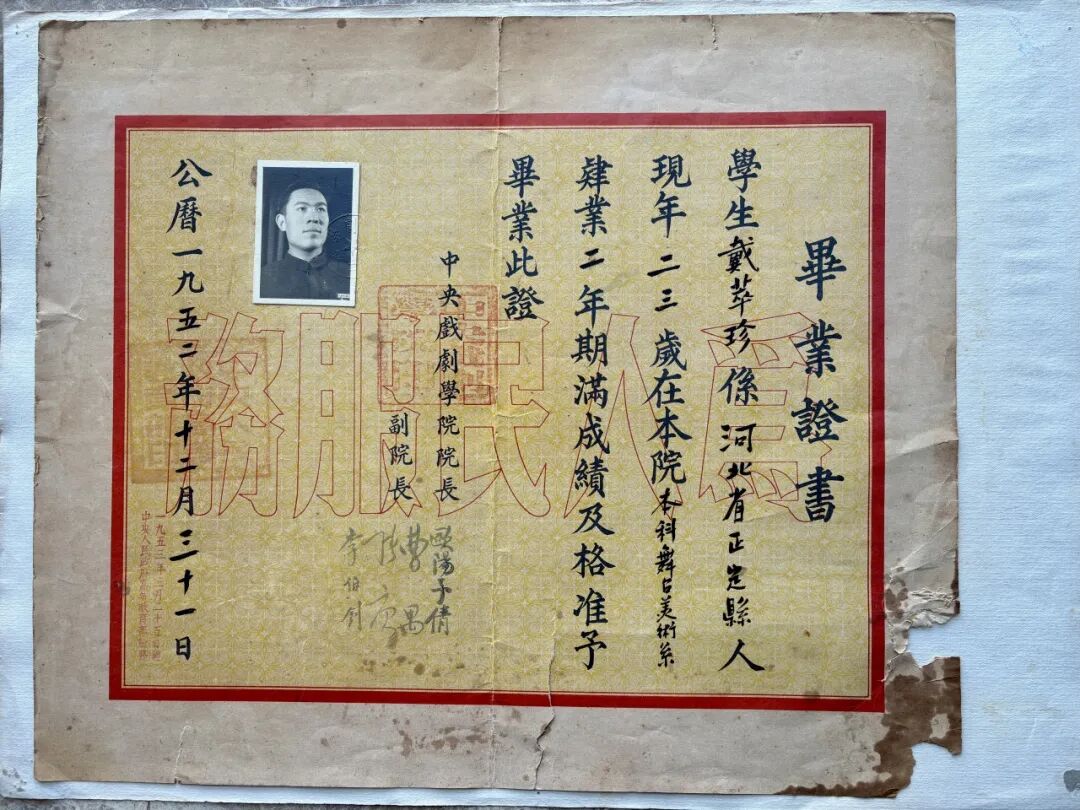 畢業證書
學生戴萃珍係河北省正定縣人
現年二三歲在本院本科舞台美術系
肄業二年期滿成績及格准予
畢業此證
中央戲劇學院院長
歐陽予倩
副院長
曹禺
張庚
李伯釗
公曆一九五二年十二月三十一日
爲人民服務